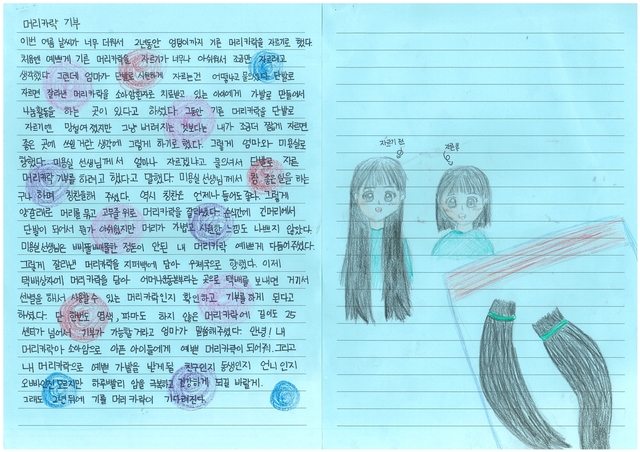 머리카락 기부
이번 여름 날씨가 너무 더워서 2년동안 엉덩이까지 기른 머리카락을 자르기로 했다.
처음엔 예쁘게 기른 머리카락을 자르기가 너무나 아쉬워서 조금만 자르려고
생각했다. 그런데 엄마가 단발로 시원하게 자르는건 어떻냐고 물으셨다. 단발로
자르면 잘라낸 머리카락을 소아암환자로 치료받고 있는 아이에게 가발로 만들어서
나눔활동을 하는 곳이 있다고 하셨다. 그동안 기른 머리카락을 단발로
자르기엔 망설여졌지만 그냥 버려지는 것보다는 내가 조금더 짧게 자르면
좋은 곳에 쓰일거란 생각에 그렇게 하기로 했다. 그렇게 엄마와 미용실로
향했다. 미용실 선생님께서 얼마나 자르겠냐고 물으셔서 단발로 자른
머리카락 기부를 하려고 했다고 말했다. 미용실 선생님께서 참 좋은일을 하는
구나 하며 칭찬을해 주셨다. 역시 칭찬은 언제나 들어도 좋다. 그렇게
양갈래로 머리를 묶고 고무줄 위로 머리카락을 잘라냈다. 순식간에 긴머리에서
단발이 되어서 뭔가 아쉬웠지만 머리가 가볍고 시원한 느낌도 나쁘지 않았다.
미용실 선생님은 삐뚤빼뚤한 정돈이 안된 내 머리카락 예쁘게 다듬어주셨다.
그렇게 잘라낸 머리카락을 지퍼백에 담아 우체국으로 향했다. 이제
택배상자에 머리카락을 담아 어머나운동본부라는 곳으로 택배를 보내면 거기서
선별을 하여서 사용할수 있는 머리카락인지 확인하고 기부를하게 된다고
하셨다. 단 한번도 염색, 파마도 하지 않은 머리카락에 길이도 25
센티가 넘어서 기부가 가능할거라고 엄마가 말씀해주셨다. 안녕! 내
머리카락아 소아암으로 아픈 아이들에게 예쁜 머리카락이 되어줘. 그리고
내 머리카락으로 예쁜 가발을 받게될 친구인지 동생인지 언니인지
오빠일진 모르지만 하루빨리 암을 극복하고 건강하게 되길 바랄게.
그래도 2년뒤에 기를 머리카락이 기다려진다.
자르기 전
자른 후